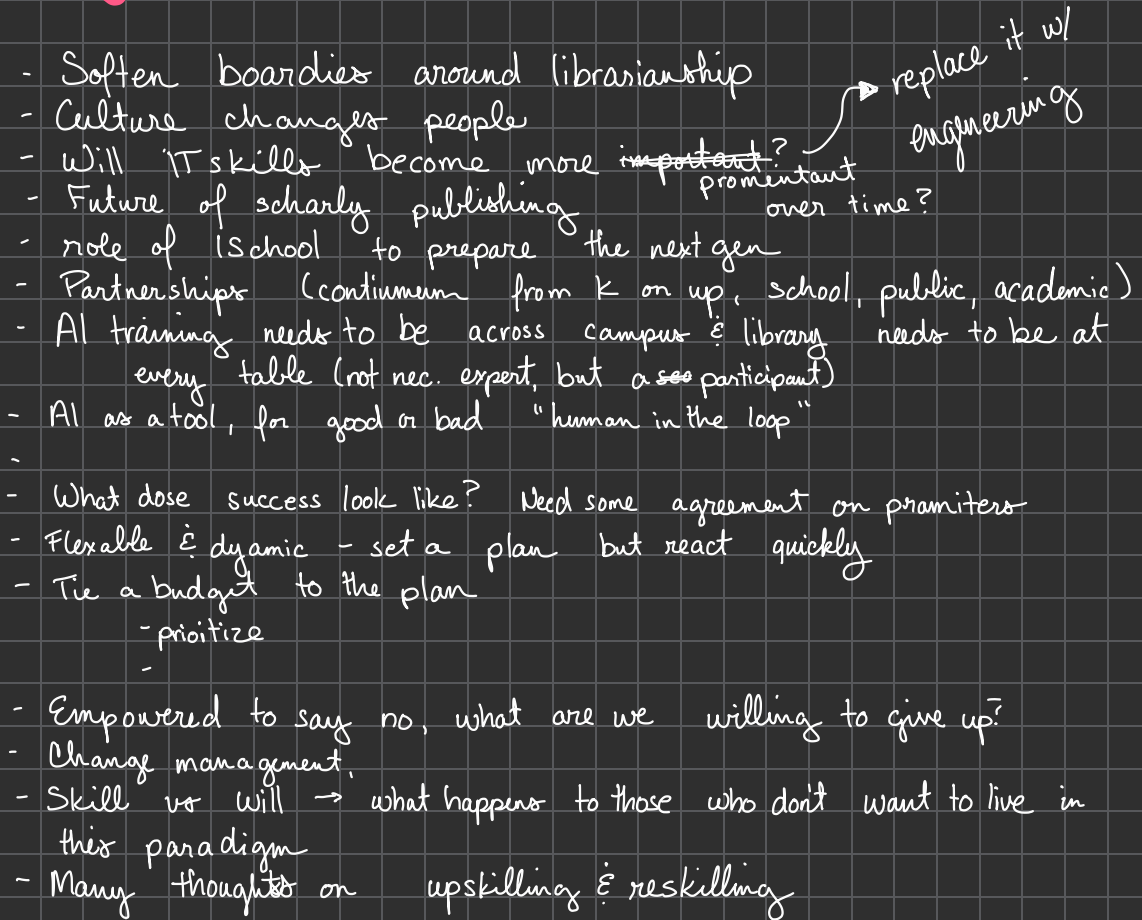 - Soften boardies around librarianship
- Culture changes people
- Will IT skills become more important? promentant over time?
replace it w/ engineering
- Future of scharly publishing
- role of ischool to prepare the next gen
- Partnerships (contiumeum from k on up, school, public, academic)
- AI training needs to be across campus & library needs to be at
every table (not nec. expert, but a participant)
- AI as a tool, for good or bad "human in the loop"
-
- What dose success look like? Need some agreement on pramiters
- Flexable & dyamic - set a plan but react quickly
- Tie a budget to the plan
- prioitize
-
- Empowered to say no, what are we willing to give up?
- Change management.
- Skill vs will → what happens to those who don't want to live in
this paradigm
- Many thoughts on upskilling & reskilling